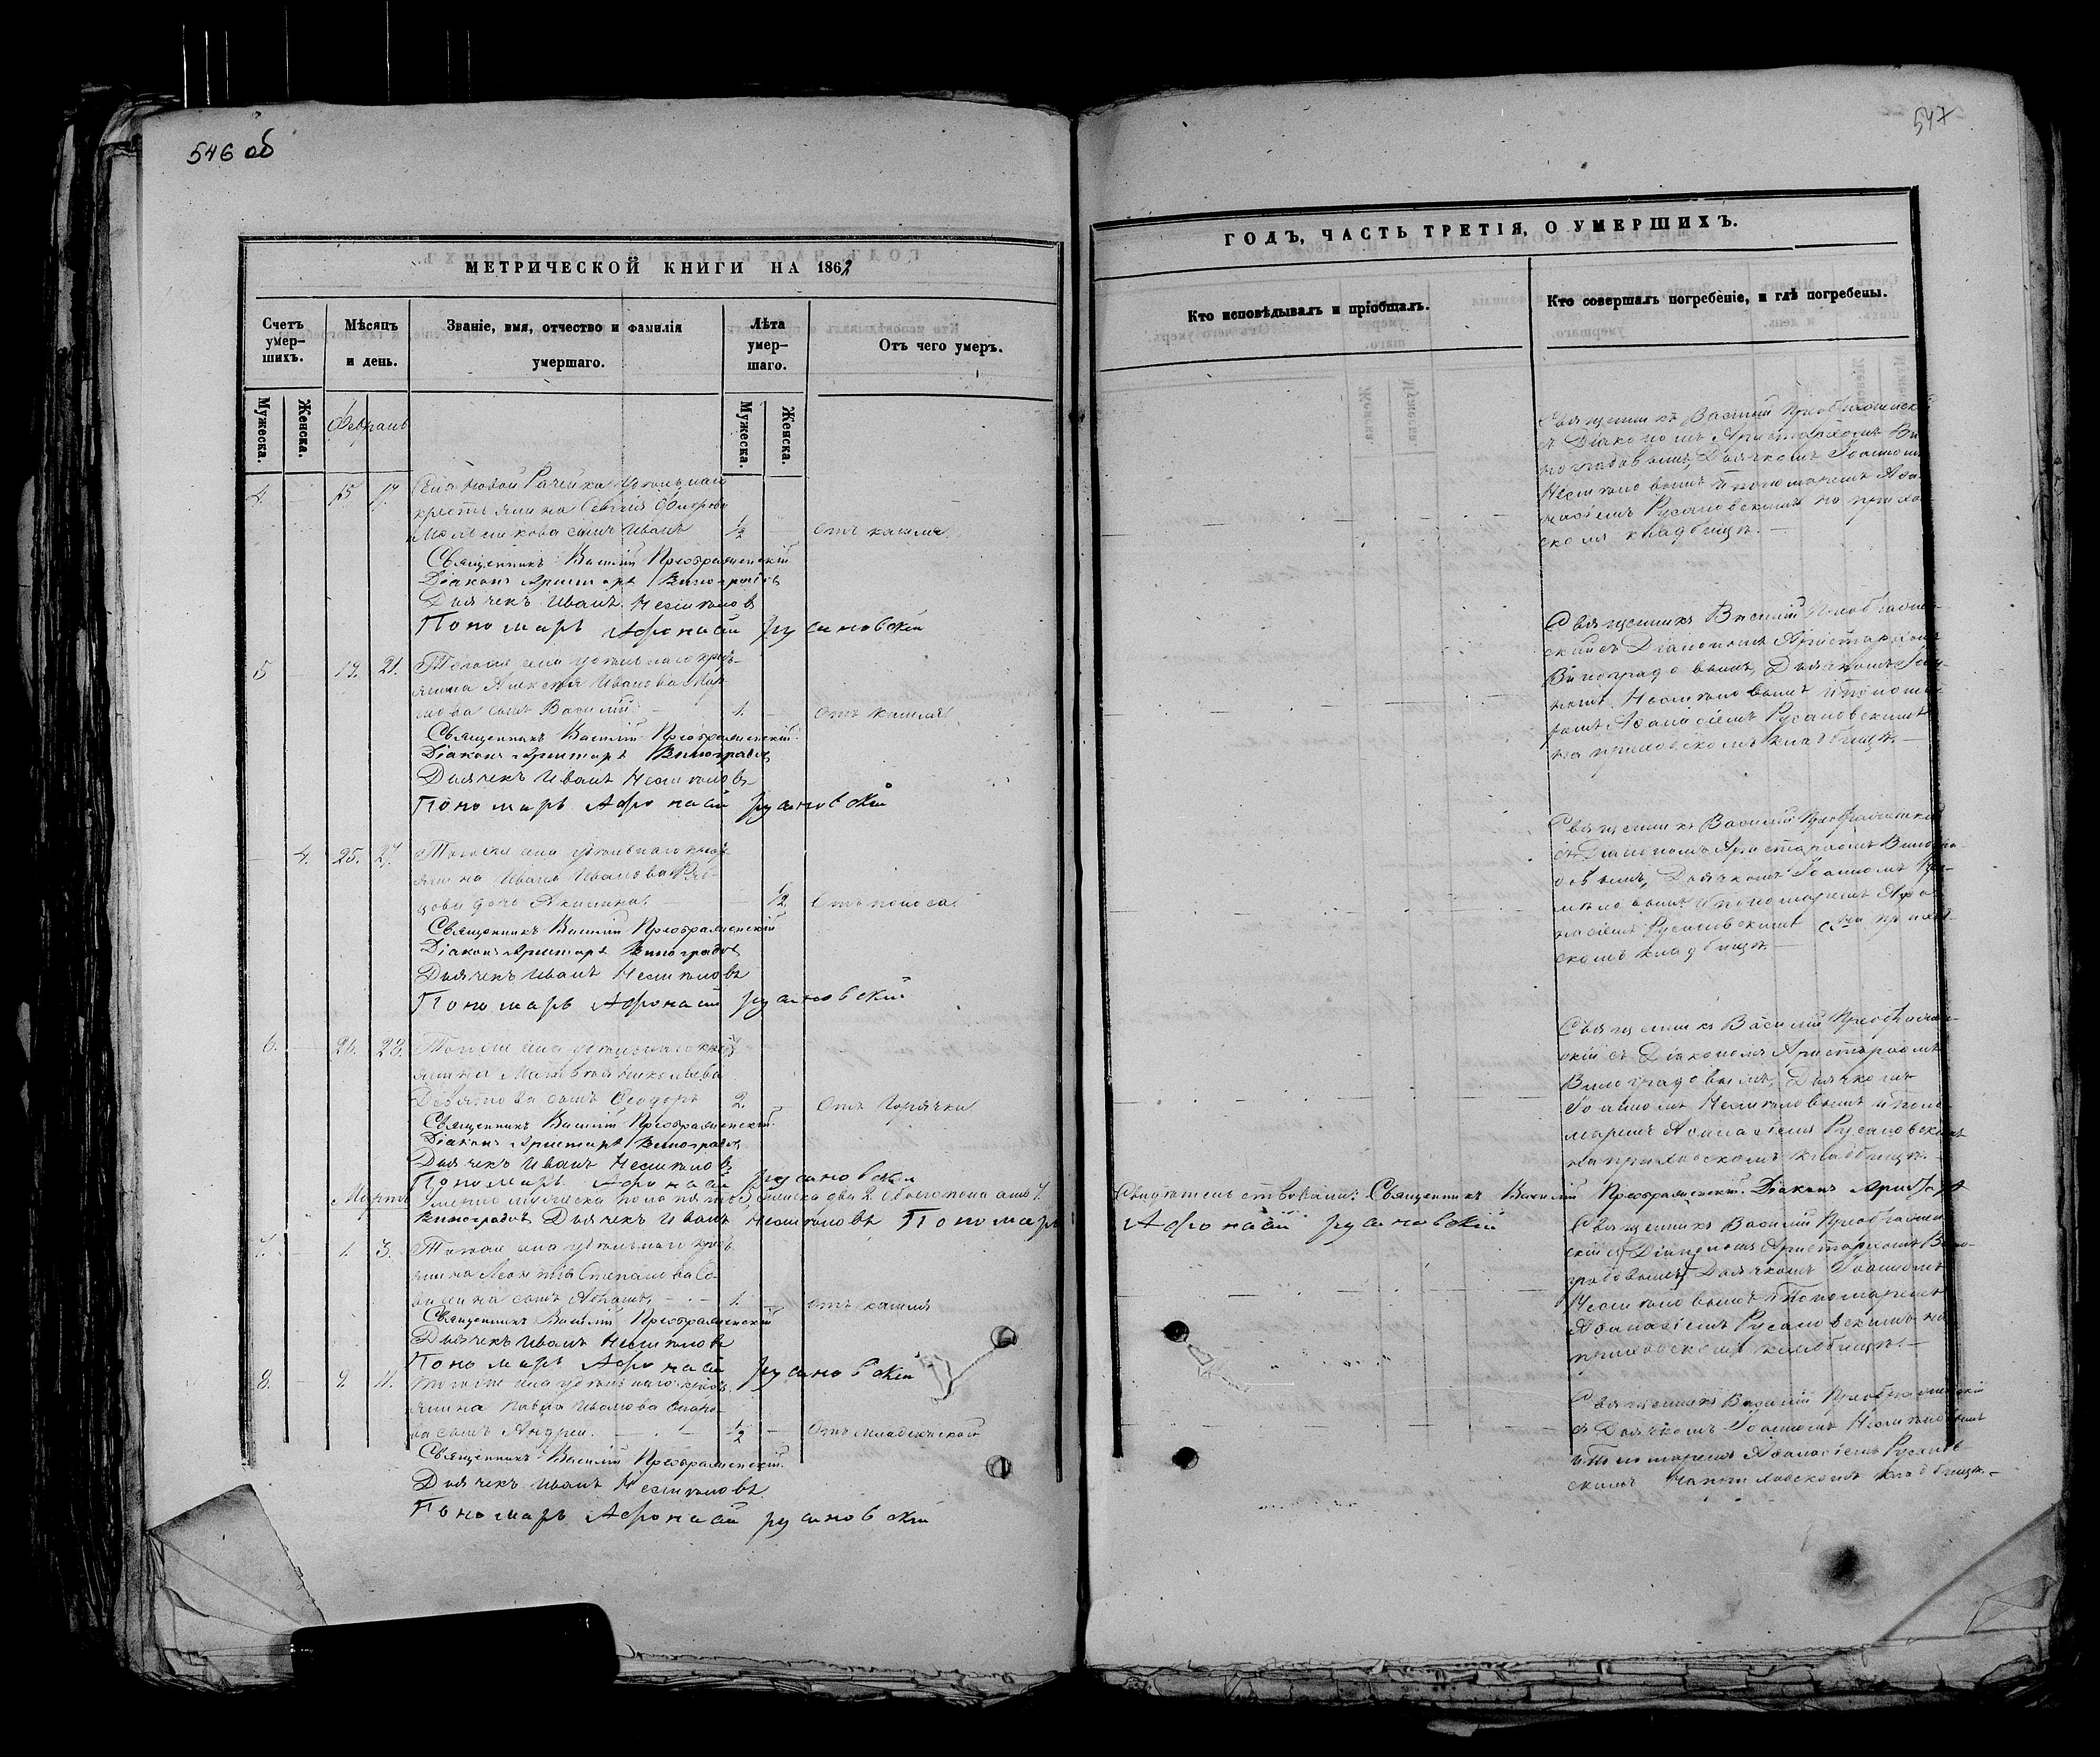 546 об
МЕТРИЧЕСКОЙ КНИГИ НА 1862
Счетъ умер-шихъ.
Мѣсяцъ и день.
Званіе, имя, отчество и фамилія умершаго.
Лѣта умер-шаго.
Отъ чего умеръ.
Мужеска.
Женска.
Мужеска.
Женска.
Февраль
4 — 15 17. Села Новой Рачейки удѣльнаго
крестьянина Сергія
сынъ Иванъ ½ — отъ кашля.
Священникъ Василій Преображенскій
Діаконъ Аристархъ Виноградовъ
Дьячекъ Иванъ Несмѣловъ
Пономарь Афонасій Русановскій
5 19. 21. Тогоже села удѣльнаго кресть-
янина Алексѣя Иванова
сынъ Василій 1. — Отъ кашля.
Священникъ Василій Преображенскій
Діаконъ Аристархъ Виноградовъ
Дьячекъ Иванъ Несмѣловъ
Пономарь Афонасій Русановскій
— 4. 25. 27. Тогоже села удѣльнаго кресть-
янина Ивана Иванова
дочь Акилина — ½ Отъ поноса.
Священникъ Василій Преображенскій
Діаконъ Аристархъ Виноградовъ
Дьячекъ Иванъ Несмѣловъ
Пономарь Афонасій Русановскій
6. — 26. 28. Тогоже села удѣльнаго кресть-
янина Матвѣя Николаева
Девятова сынъ Ѳеодоръ 2. — Отъ горячки
Священникъ Василій Преображенскій
Діаконъ Аристархъ Виноградовъ
Дьячекъ Иванъ Несмѣловъ
Пономарь Афонасій Русановскій
Мартъ Умерло мужеска пола женска два 2. обоего пола
Виноградовъ Дьячекъ Иванъ Несмѣловъ Пономарь
7. — 1. 3. Тогоже села удѣльнаго кресть-
янина Леонтія Степанова
сынъ 1. — отъ кашля
Священникъ Василій Преображенскій
Дьячекъ Иванъ Несмѣловъ
Пономарь Афонасій Русановскій
8. — 9. 11. Тогоже села удѣльнаго кресть-
янина Павла Иванова
сынъ Андрей. ½ — Отъ младенческой
Священникъ Василій Преображенскій
Дьячекъ Иванъ Несмѣловъ
Пономарь Афонасій Русановскій
547
ГОДЪ, ЧАСТЬ ТРЕТІЯ, О УМЕРШИХЪ.
Кто исповѣдывалъ и пріобщалъ.
Кто совершалъ погребеніе, и гдѣ погребены.
Священникъ Василій Преображенскій
съ Діакономъ Аристархомъ Ви-
ноградовымъ, Дьячкомъ Іоанномъ
Несмѣловымъ и пономаремъ Аѳа-
насіемъ Русановскимъ на приход-
скомъ кладбищѣ. —
Священникъ Василій Преображен-
скій съ Діакономъ Аристархомъ
Виноградовымъ, Дьячкомъ Іоан-
номъ Несмѣловымъ и понома-
ремъ Аѳанасіемъ Русановскимъ
на приходскомъ кладбищѣ. —
Священникъ Василій Преображенскій
съ Діакономъ Аристархомъ Виногра-
довымъ, Дьячкомъ Іоанномъ Нес-
мѣловымъ и пономаремъ Аѳа-
насіемъ Русановскимъ на приход-
скомъ кладбищѣ. —
Священникъ Василій Преображен-
скій съ Діакономъ Аристархомъ
Виноградовымъ, Дьячкомъ
Іоанномъ Несмѣловымъ и поно-
маремъ Аѳанасіемъ Русановскимъ
на приходскомъ кладбищѣ. —
Свидѣтельствовали: Священникъ Василій Преображенскій. Діаконъ Аристархъ
Афонасій Русановскій
Священникъ Василій Преображен-
скій съ Діакономъ Аристархомъ Вино-
градовымъ, Дьячкомъ Іоанномъ
Несмѣловымъ и Пономаремъ
Аѳанасіемъ Русановскимъ на
приходскомъ кладбищѣ. —
Священникъ Василій Преображенскій
съ Дьячкомъ Іоанномъ Несмѣловымъ
и Пономаремъ Аѳанасіемъ Русанов-
скимъ на приходскомъ кладбищѣ. —